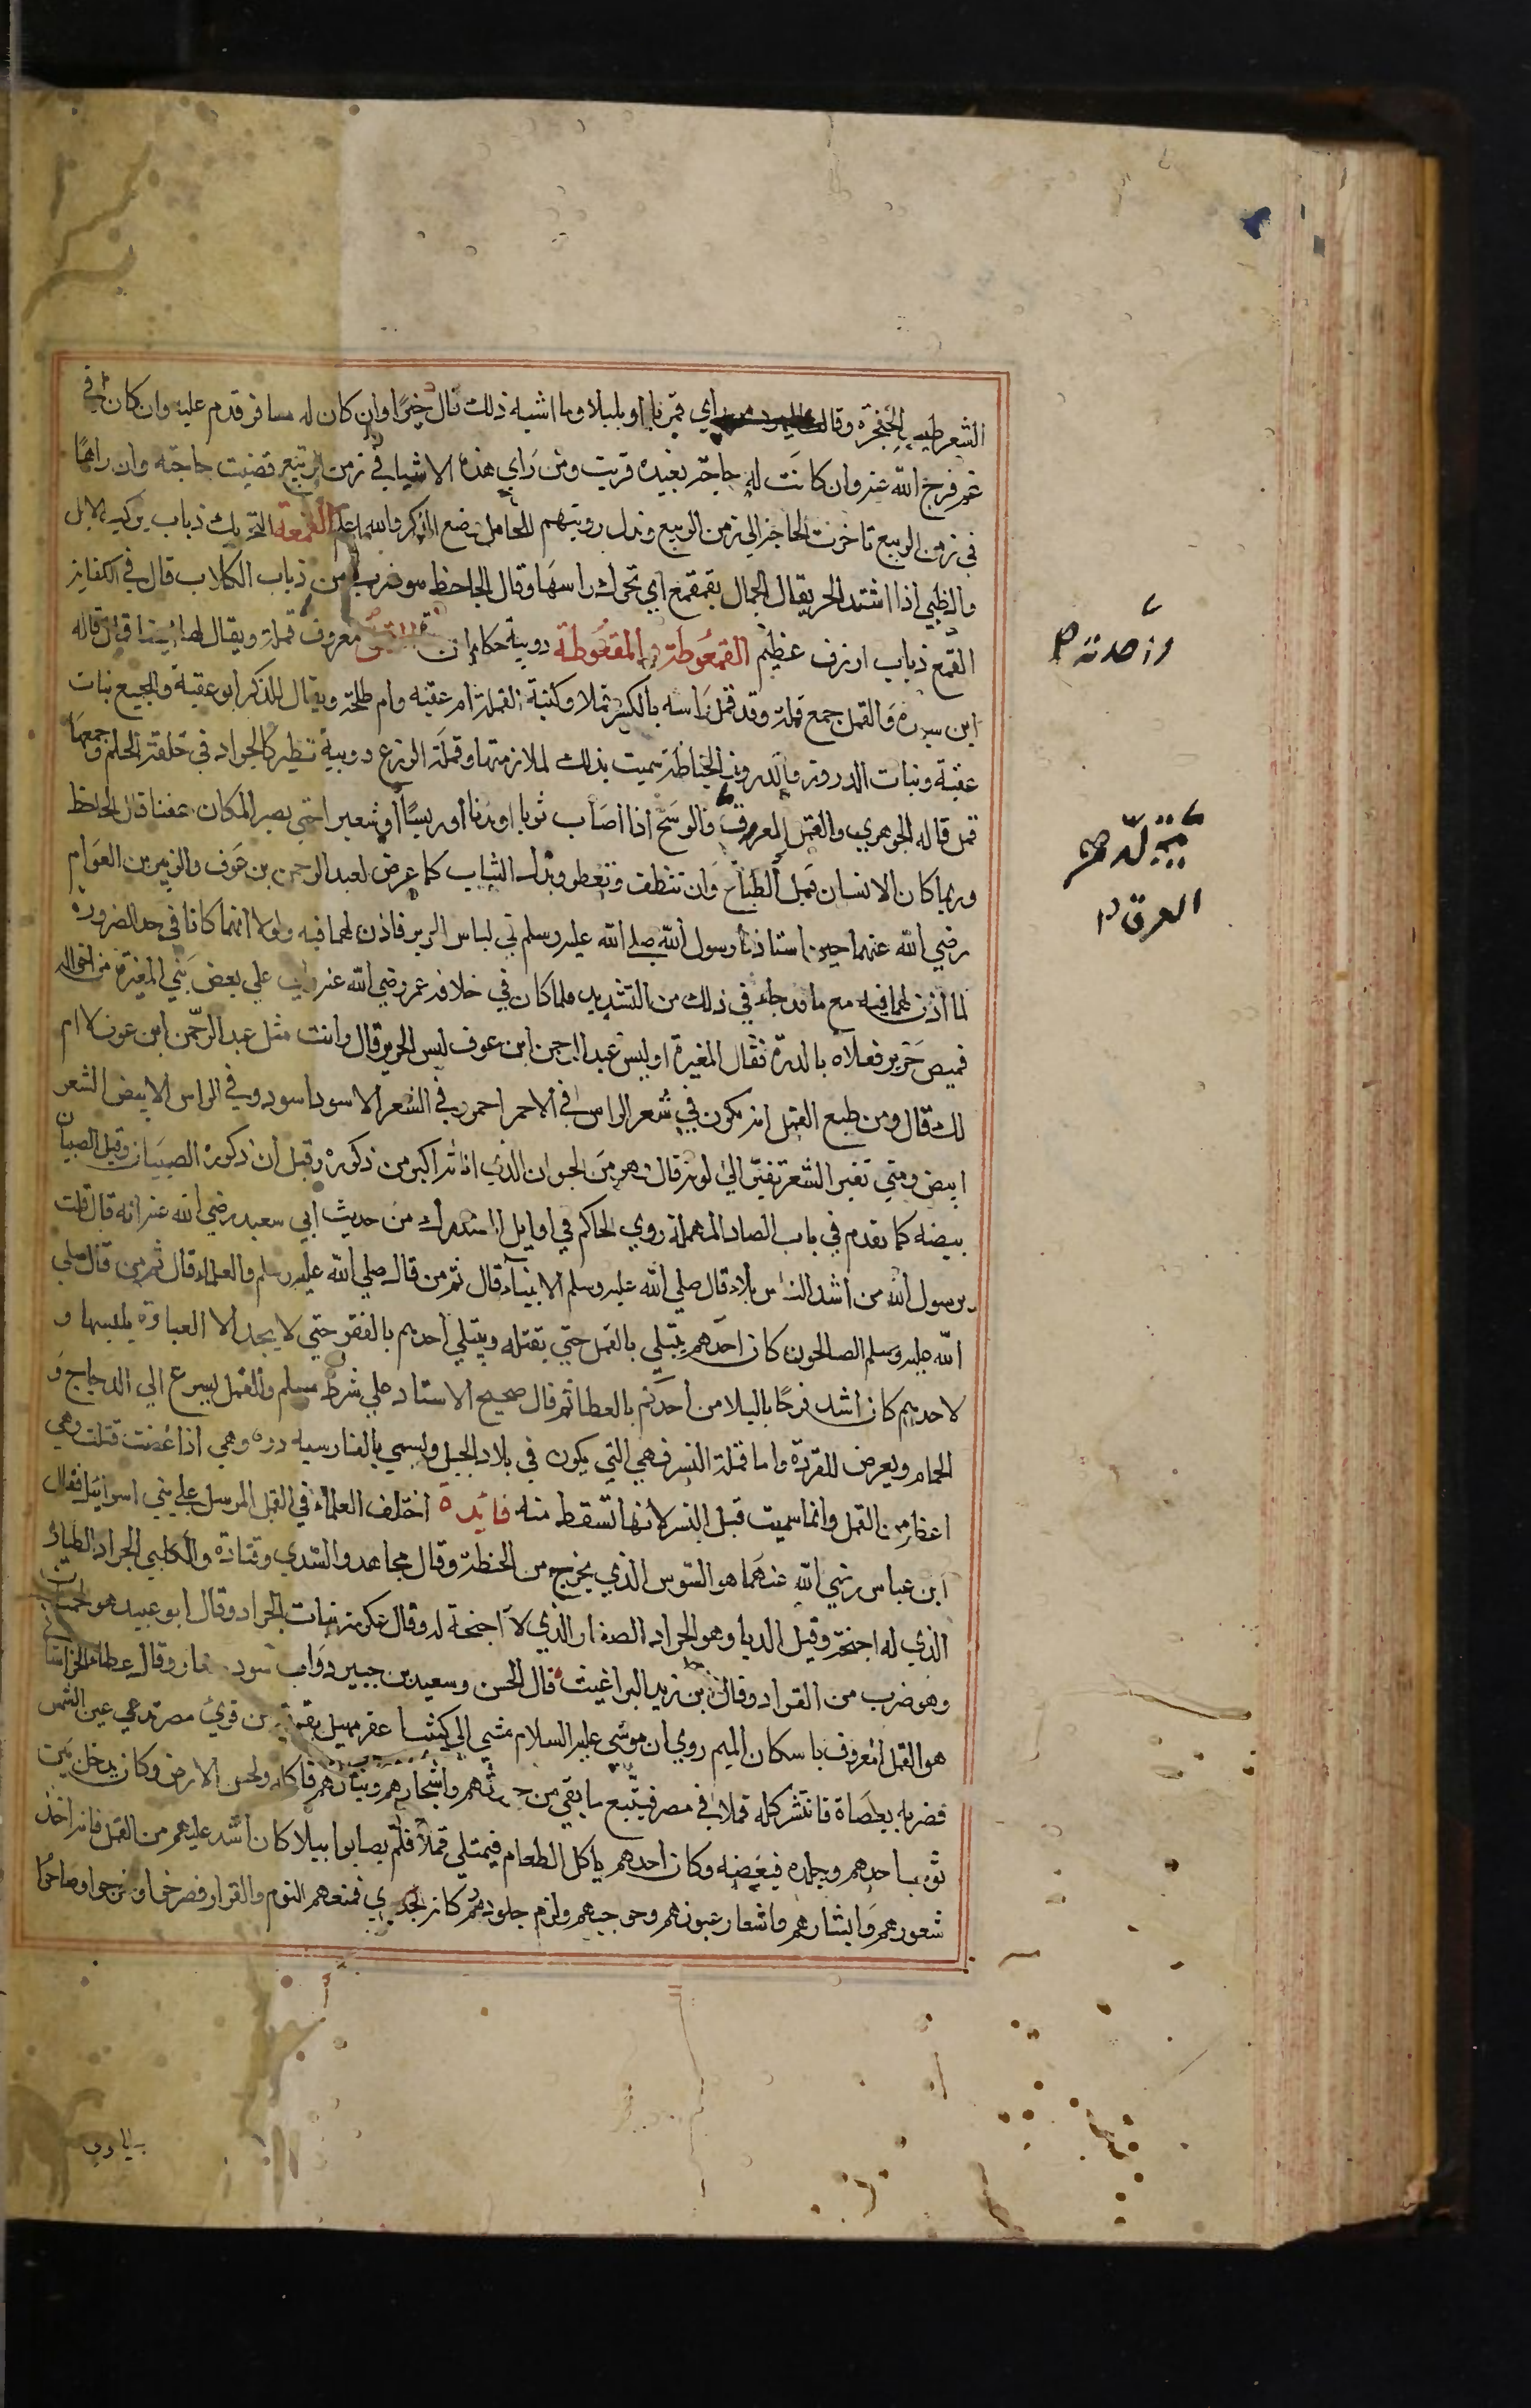 الشعر طيب الحنجرة وقالت اليهود من راي قمريا او بلبلا وما اشبه ذلك نال خيرًا وان كان له مسافر قدم عليه وان كان في
غم فرج الله عنه وان كانت له حاجة بعيده قربت ومن راي هذه الاشيا في زمن الربيع قضيت حاجته وان راها
في زمن الربيع تاخرت الحاجة الي زمن الربيع وتدل رويتهم للحامل بوضع الذكر والله اعلم القمعة التحريك ذباب يركب الابل
والظبي اذا اشتد الحر يقال الجمال يقمقمع اي تحرك راسها وقال الجاحظ هو ضرب من ذباب الكلاب قال في الكفاية
القمع ذباب ازرق عظيم القمعوطة والمقعوطة دويبة حكاها ابن القمل معروف قملة ويقال لها ايضا قمال قاله
ابن سيده والقمل جمع قملة وقد قمل راسه بالكسر قملا وكنية القملة ام عقبه وام طلحة ويقال للذكر ابو عقبة والجميع نبات
عقبة ونبات الدروز والدروز الخياطة سميت بذلك لملازمتها وقملة الزرع دويبة تطير كالجراد في خلقة الحلم وجمعها
قمل قاله الجوهري والقمل المعروف والوسخ اذا اصاب ثوبا او بدنا او ريسًا او شعرا حتي يصير المكان عفنا قال الجاحظ
وربما كان الانسان قمل الطباع وان تنظف وتعطر وبدل الثياب كما عرض لعبد الرحمن بن عوف والزبير بن العوام
رضي الله عنهما حين استاذنا رسول الله صلى الله عليه وسلم في لباس الحرير فاذن لهما فيه ولولا انهما كانا في حد الضرورة
لما اذن لهما فيه مع ما قد جاء في ذلك من التشديد فلما كان في خلافة عمر رضي الله عنه راي علي بعض بني المغيرة من اخواله
قميص حرير فعلاه بالدرة فقال المغيرة اوليس عبد الرحمن ابن عوف لبس الحرير قال وانت مثل عبد الرحمن ابن عوف لا ام
لك قال ومن طبع القمل انه يكون في شعر الراس في الاحمر احمر وفي الشعر الاسود اسود وفي الراس الابيض الشعر
ابيض ومتي تغير الشعر تغير الي لونه قال هو من الحيوان الذي اناثه اكبر من ذكوره وقيل ان ذكوره الصيبان وقيل الصيبان
بيضه كما تقدم في باب الصاد المهملة روي الحاكم في اوايل المستدرك من حديث ابي سعيد رضي الله عنه انه قال قلت
يرسول الله من اشد الناس بلاء قال صلي الله عليه وسلم الانبياء قال ثم من قال صلي الله عليه وسلم والعلماء قال ثم من قال صلي
الله عليه وسلم الصالحون كان احدهم يبتلي بالقمل حتي يقتله ويبتلي احدهم بالفقر حتي لا يجد الا العباوة يلبسها و
لاحدهم كان اشد فرحًا بالبلا من احدكم بالعطا ثم قال صحيح الاسناد علي شرط مسلم والقمل يسرع الي الدجاج و
الحمام ويعرض للقردة واما قملة النسر فهي التي يكون في بلاد الجبل ويسمي بالفارسيه دره وهي اذا عضت قتلت وهي
اعظم من القمل وانما سميت قمل النسر لانها تسقط منه فايدة اختلف العلماء في القمل المرسل علي بني اسرائيل فقال
ابن عباس رضي الله عنهما هو السوس الذي يخرج من الحنطة وقال مجاهد والسدي وقتادة والكلبي الجراد الطيار
الذي له اجنحة وقيل الدبا وهو الجراد الصغار الذي لا اجنحة له وقال عكرمة نبات الجراد وقال ابو عبيد هو الحمنان
وهو ضرب من القراد وقال ابن زيد البراغيث قال الحسن وسعيد بن جبير دواب سود صغار وقال عطاء الخراسا
هو القمل المعروف باسكان الميم روي ان موسى عليه السلام مشي الي كثيب اعفر مهيل بقرية من قري مصر تدعي عين الشمس
فضربه بعصاة فانتشر كله قملا في مصر فيتبع ما بقي من حرثهم واشجارهم ونباتهم فاكله ولحس الارض وكان يدخل بين
ثوب احدهم وجلده فيعضه وكان احدهم ياكل الطعام فيمتلي قملا فلم يصابوا ببلا كان اشد عليهم من القمل فانه اخذ
شعورهم وابشارهم واشعار عيونهم وحواجبهم ولزم جلودهم كانه الجدري فمنعهم النوم والقرار فصرخوا وضجوا وصاحوا
واحدته ص
العرق